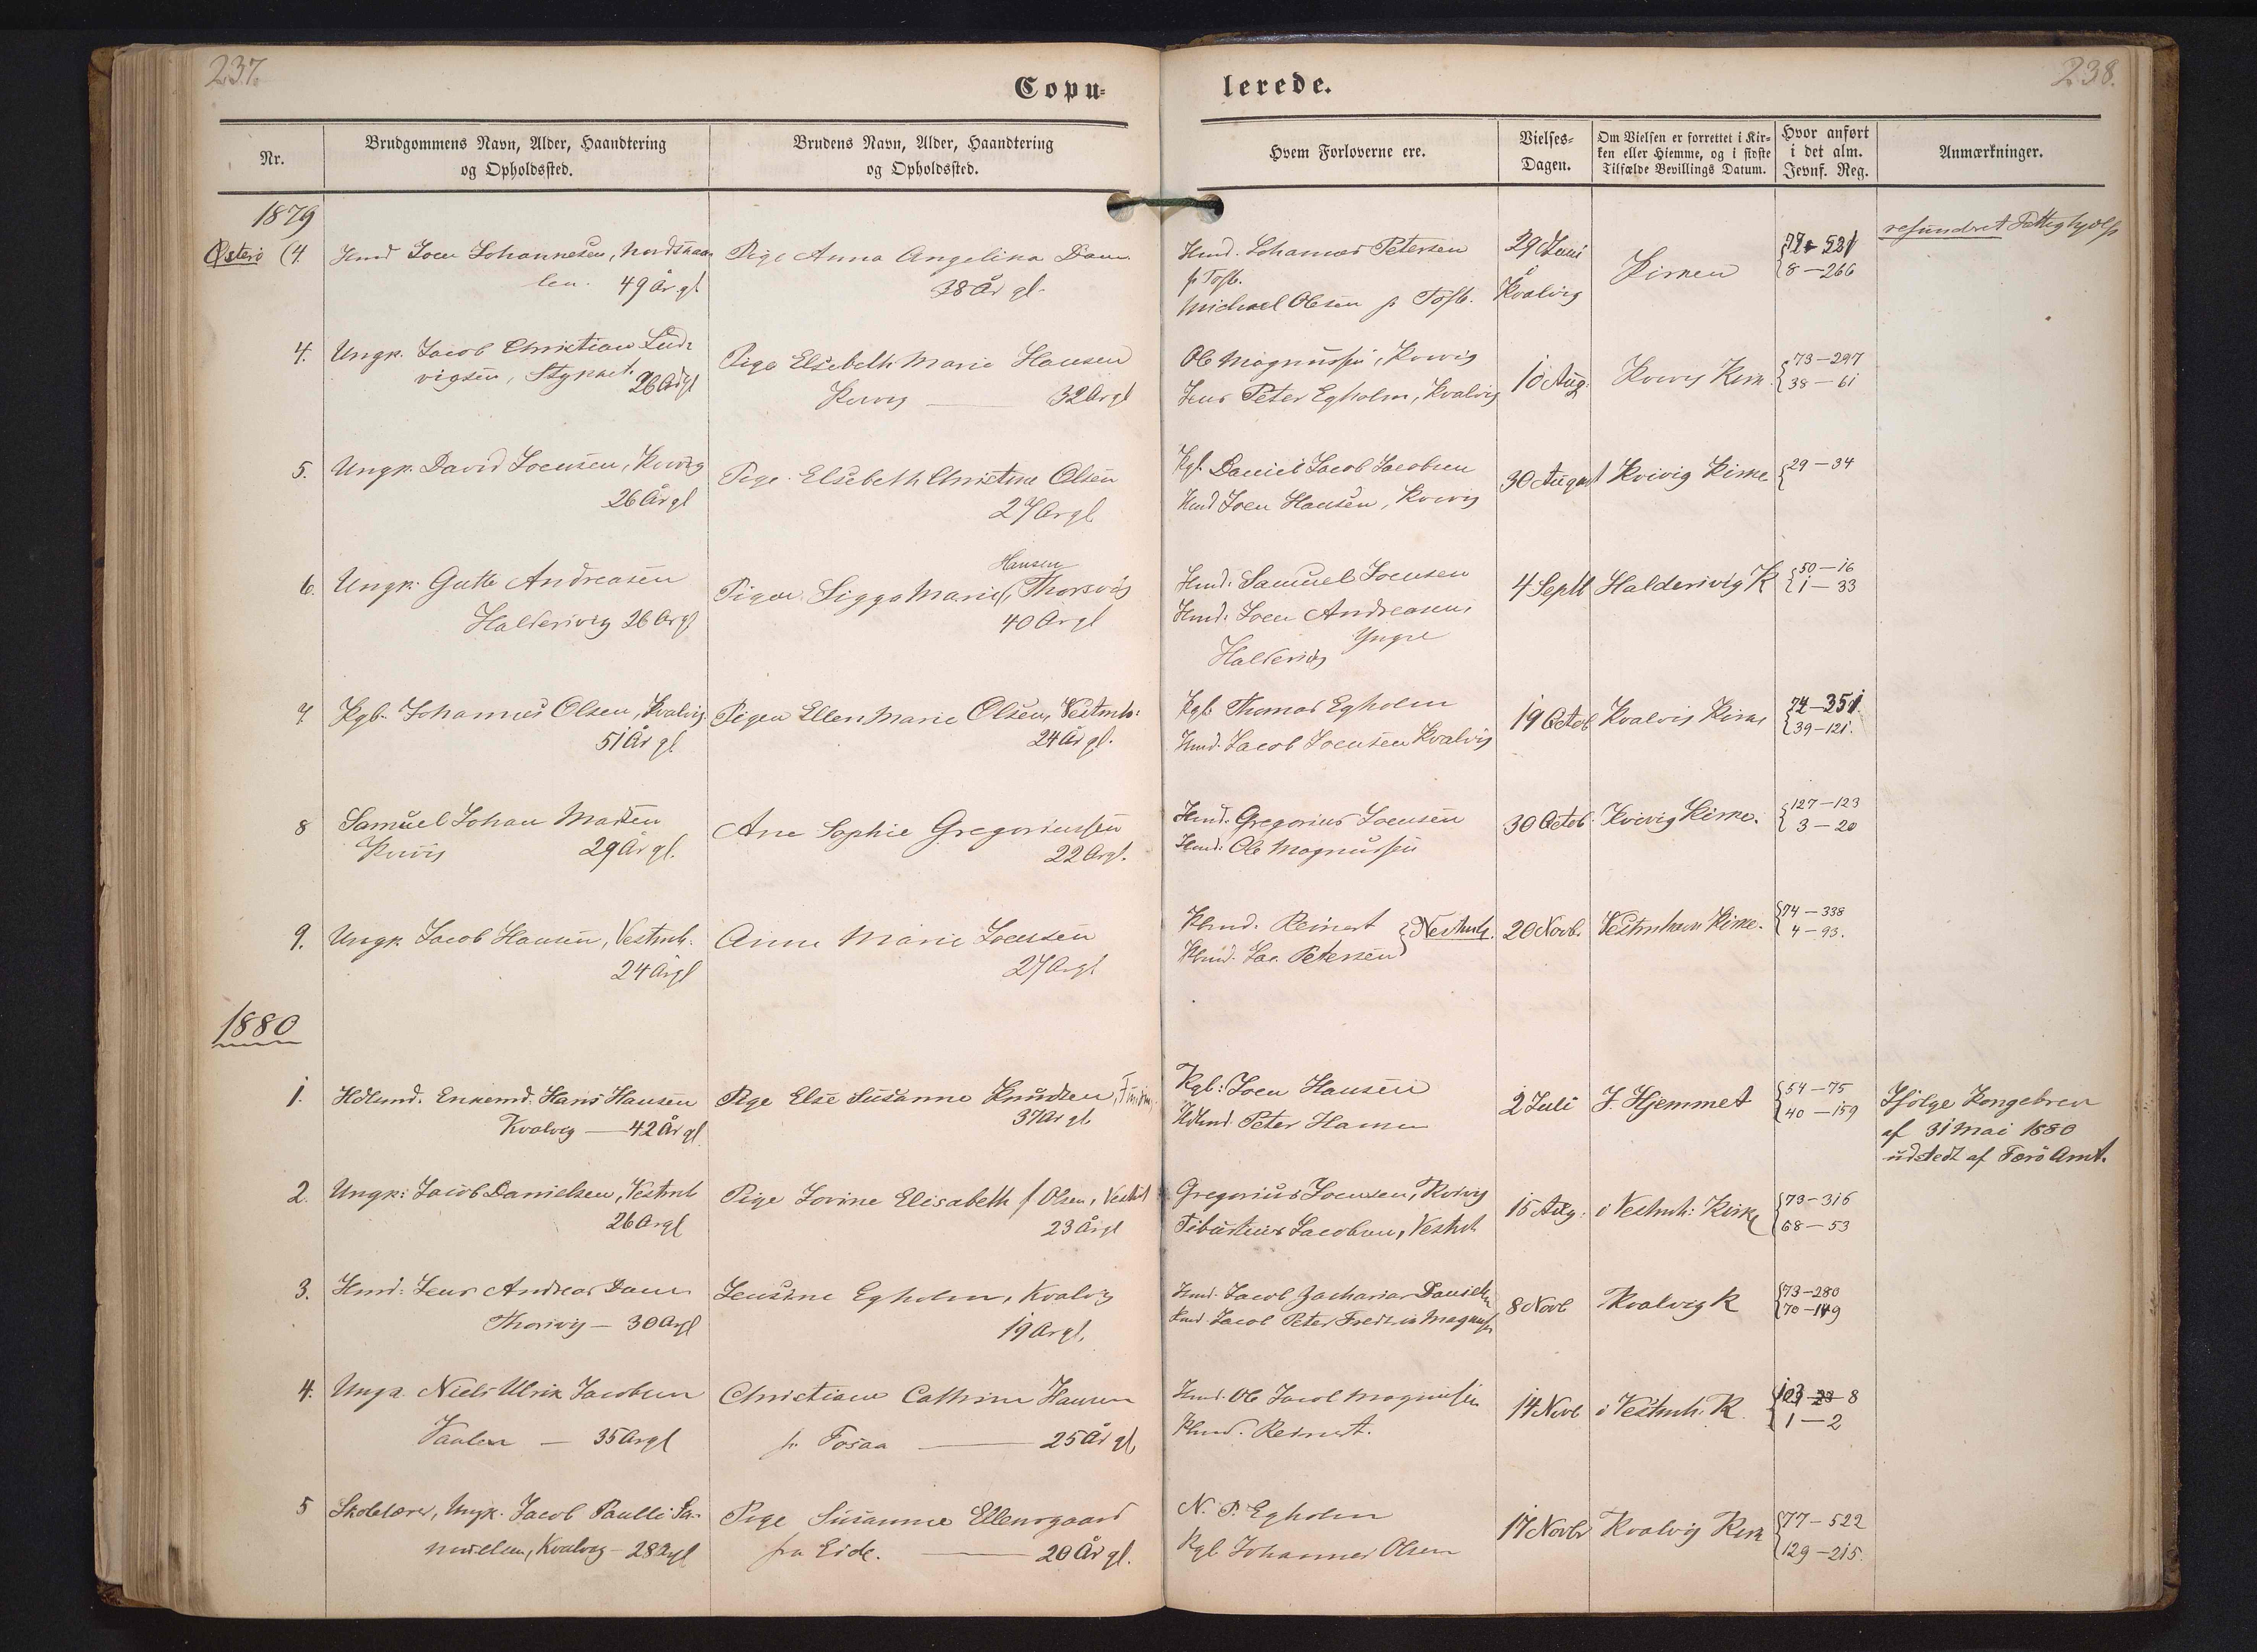 237.
238.
Copu-
lerede.
Nr.
Brudgommens Navn, Alder, Haandtering
og Opholdssted.
Brudens Navn, Alder, Haandtering
og Opholdssted.
Hvem Forloverne ere.
Vielses-
Dagen.
Om Vielsen er forrettet i Kir-
ken eller Hjemme, og i sidste
Tilfælde Bevillings Datum.
Hvor anført
i det alm.
Jevnf. Reg.
Anmærkninger.
1879
Österö (4.
Hmd Joen Johannesen, Nordskaa
len. 49 År gl
Pige Anna Angelika Dam
38 År gl.
Hmd. Johannes Petersen
fr Tofte.
Michael Olsen fr Tofte.
29 Juni
Kvalvig
Kirken
77 - 521
8 - 266
refunderet Fattighjælp
4.
Ungk. Jacob Christian Lud-
vigsen, Stykket 26 År gl
Pige Elsebeth Marie Hansen
Kvivig — 32 År gl
Ole Magnussen, Kvivig
Jens Peter Egholm, Kvalvig
10 Aug.
Kvivig Kirk.
73 - 297
38 - 61
5.
Ungk. David Joensen, Kvivig
26 År gl
Pige Elsebeth Christine Olsen
27 År gl
Kgb. Daniel Jacob Jacobsen
Hmd Joen Hansen, Kvivig
30 August
Kvivig Kirke
29 - 34
6.
Ungk. Gutte Andreasen
Haldersvig 26 År gl
Hansen
Pigen Sigga Marie, Thorsvig
40 År gl
Hmd. Samuel Joensen
Hmd. Joen Andreasen
Yngre
Haldersvig
4 Septb
Haldersvig K
50 - 16
1 - 33
7
Kgb. Johannes Olsen, Kvalvig.
51 År gl.
Pigen Ellen Marie Olsen, Vestmh:
24 År gl.
Kgb Thomas Egholm
Hmd. Jacob Joensen Kvalvig
19 Octob
Kvalvig Kirke
74 - 351
39 - 121.
8
Samuel Johan Madsen
Kvivig 29 År gl.
Ane Sophie Gregoriussen
22 År gl.
Hmd. Gregorius Joensen
Hmd. Ole Magnussen
30 Octob.
Kvivig Kirke.
127 - 123
3 - 20
9.
Ungk Jacob Hansen, Vestmh.
24 År gl
Anne Marie Joensen
27 År gl
Khmd. Reinert
Khmd. Jac. Petersen
Vestmh.
20 Novb.
Vestmhavn Kirke.
74 - 338
4 - 93.
1880
1.
Hdlsmd. Enkemd. Hans Hansen
Kvalvig — 42 År gl.
Pige Else Susanne Knudsen,
37 År gl.
Kgb: Joen Hansen
Hdlsmd. Peter Hansen
2 Juli
I Hjemmet
54 - 75
40 - 159
Ifölge Kongebrev
af 31 Mai 1880
udstedt af Færö Amt.
2.
Ungk: Jacob Danielsen, Vestmh
26 År gl
Pige Jovine Elisabeth f Olsen, Vestmh
23 År gl
Gregorius Joensen, Kvivig
Tiburtius Jacobsen, Vestmh
15 Aug.
i Vestmh: Kirke
73 - 316
68 - 53
3.
Hmd: Jens Andreas Dam
Thorsvig — 30 År gl
Jensine Egholm, Kvalvig
19 År gl.
Hmd. Jacob Zacharias Danielsen
Hmd. Jacob Peter Fredrik Magnussen
8 Novb
Kvalvig K
73 - 280
70 - 149
4.
Ungk. Niels Ulrik Jacobsen
Vaalen — 35 År gl
Christiane Cathrine Hansen
fr. Fosaa — 25 År gl.
Hmd. Ole Jacob Magnussen
Khmd. Reinert.
14 Novb
i Vestmh. K.
103 - 8
1 - 2
5
Skolelærer, Ungk. Jacob Paulli Sa-
muelsen, Kvalvig - 28 År gl
Pige Susanne Ellensgaard
fra Eide. — 20 År gl.
N. P. Egholm
Kgl. Johannes Olsen
17 Novbr
Kvalvig Kirk
77 - 522
129 - 215.